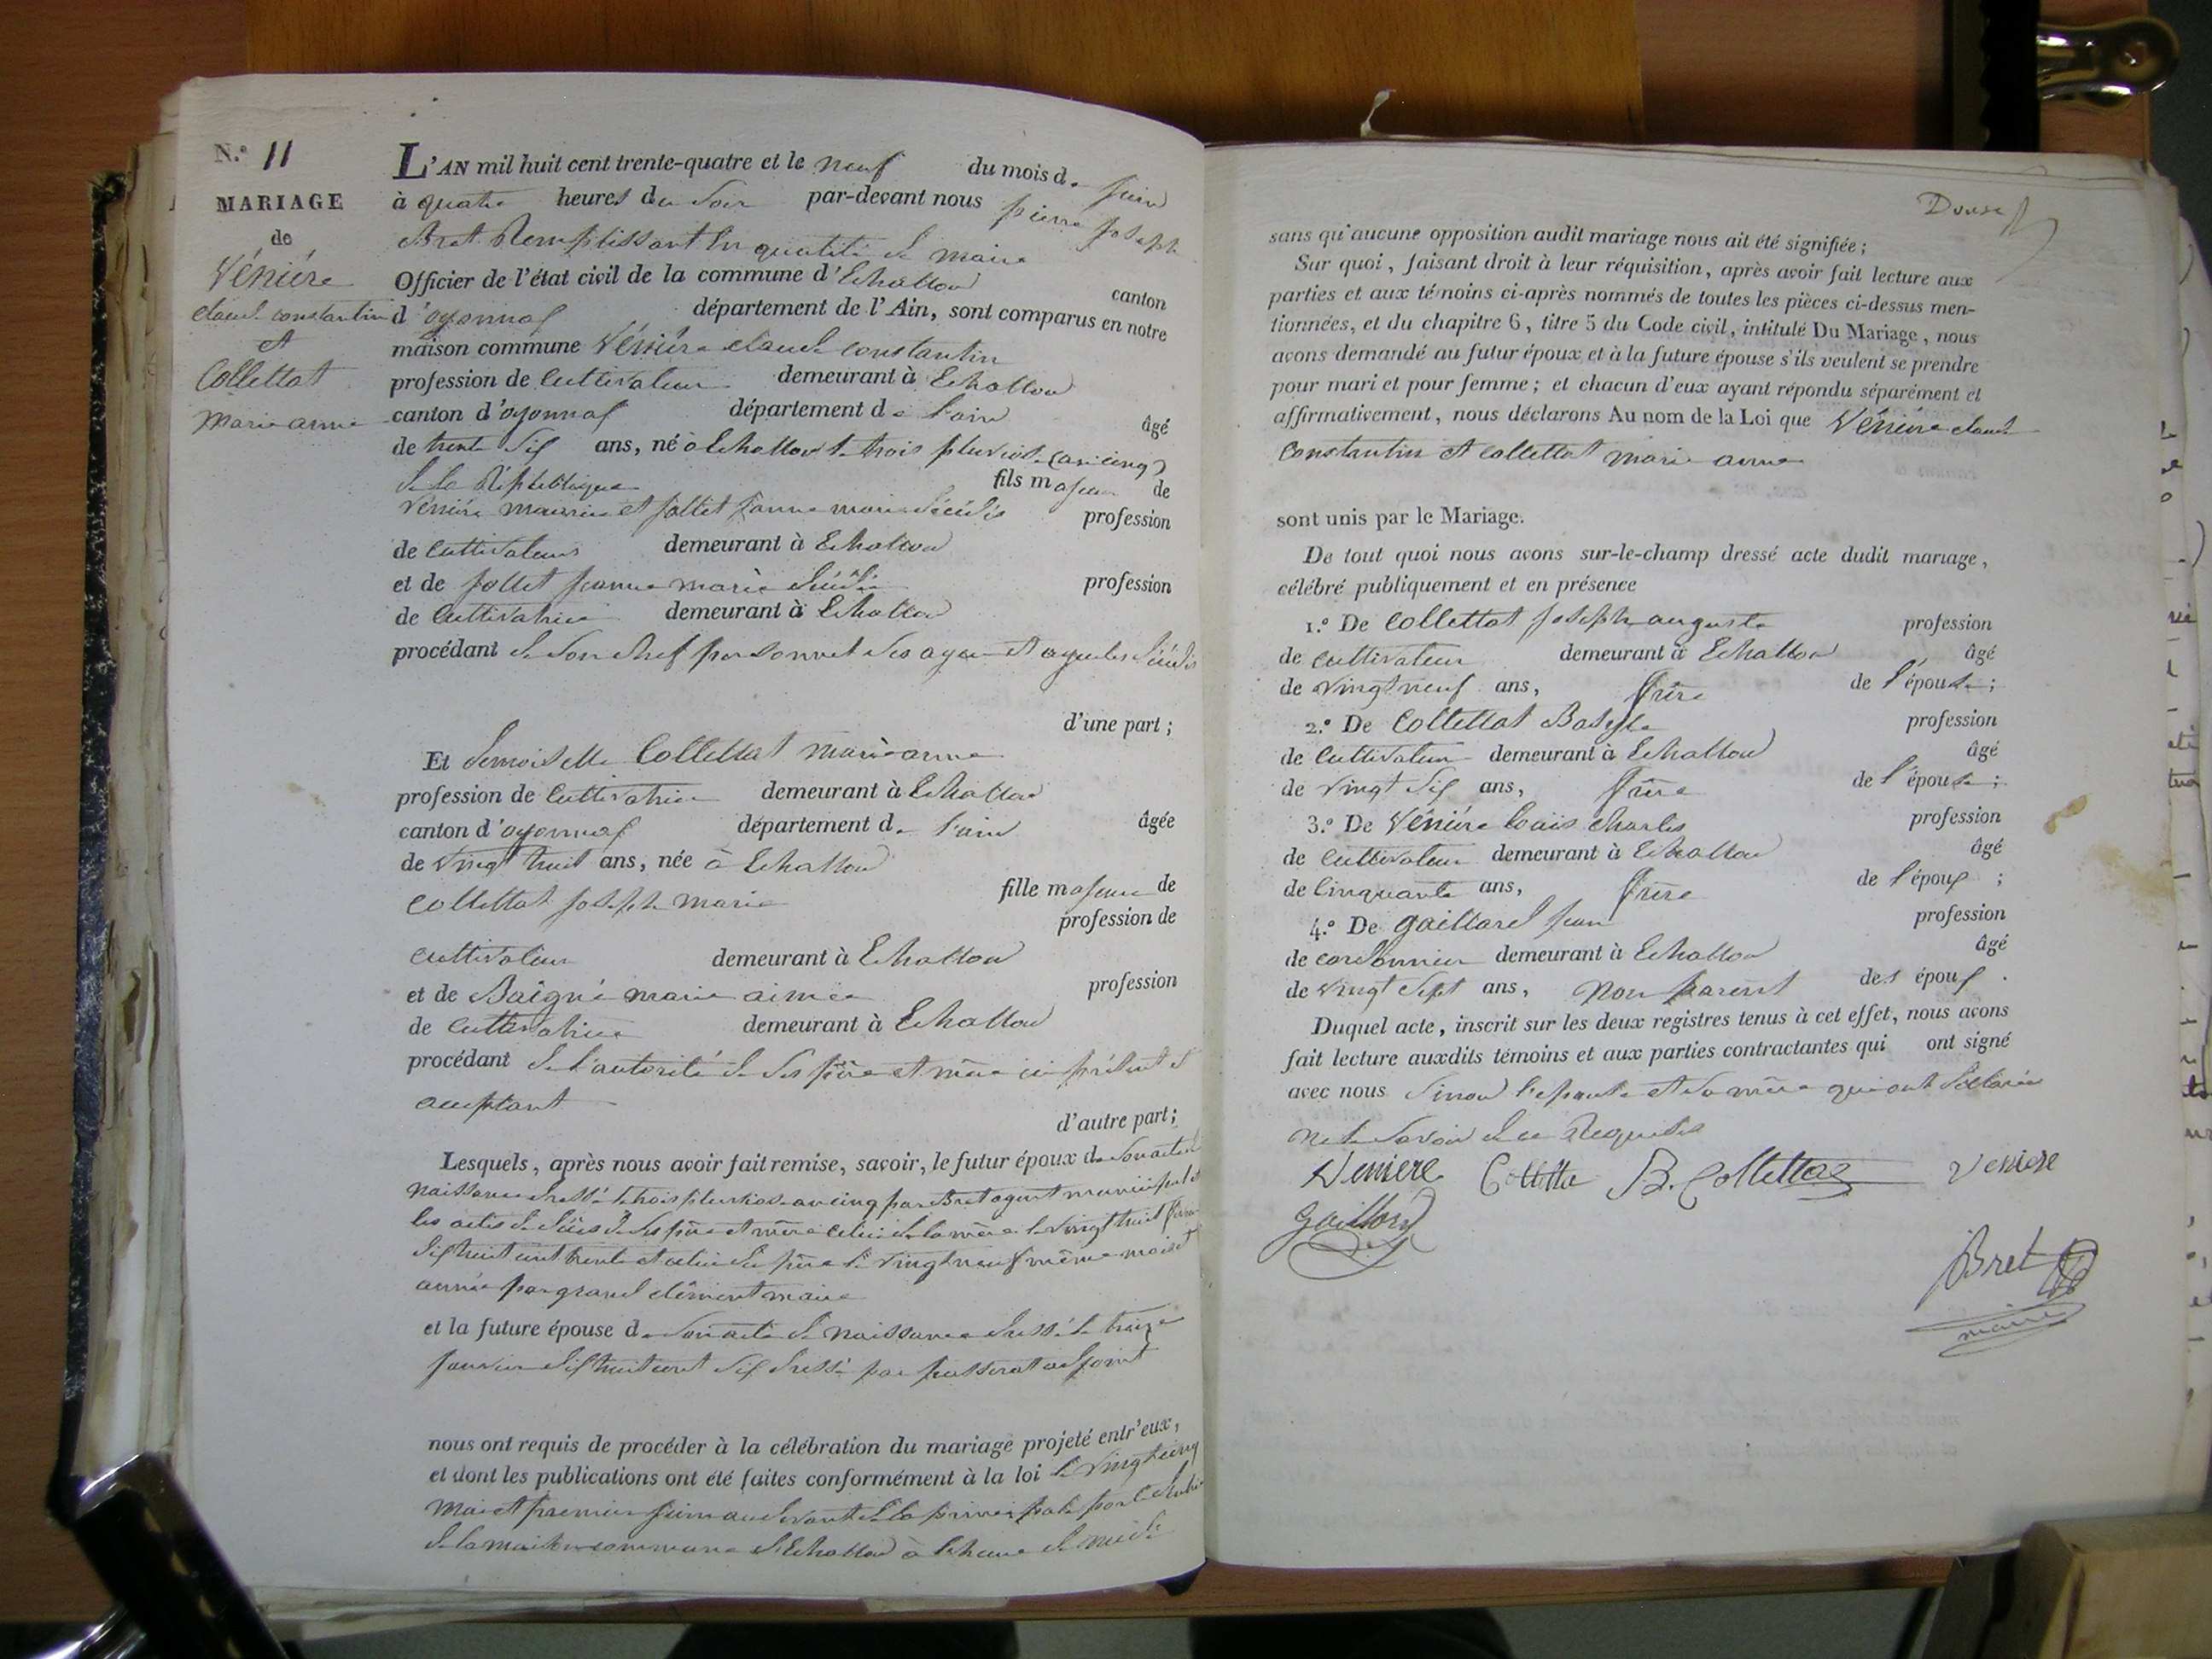 N.º 11
MARIAGE
de
Vénière
claude constantin
et
Collettat
marie anne
L'AN mil huit cent trente-quatre et le neuf du mois de juin
à quatre heures du soir par-devant nous pierre joseph
Bret Remplissant en qualité de maire
Officier de l'état civil de la commune d'Echallon canton
d'oyonnax département de l'Ain, sont comparus en notre
maison commune Vénière claude constantin
profession de cultivateur demeurant à Echallon
canton d'oyonnax département de l'ain âgé
de trente six ans, né à Echallon le trois pluviose (an cinq)
de la République fils majeur de
Vénière maurice et jollet jeanne marie décédés profession
de cultivateurs demeurant à Echallon
et de jollet jeanne marie décédée profession
de cultivatrice demeurant à Echallon
procédant de son chef personnel ses ayeux et ayeules décédés
d'une part ;
Et demoiselle Collettat marie anne
profession de cultivatrice demeurant à Echallon
canton d'oyonnax département de l'ain âgée
de vingt huit ans, née à Echallon
fille majeure de
collettat joseph marie profession de
cultivateur demeurant à Echallon
et de Baigné marie aimée profession
de cultivatrice demeurant à Echallon
procédant de l'autorité de ses père et mère ici présent et
acceptant
d'autre part ;
Lesquels, après nous avoir fait remise, savoir, le futur époux de son acte de
naissance dressé le trois pluviose an cinq par Bret agent municipal et
les actes de décès de ses père et mère celui de la mère le vingt huit
dix huit cent trente et celui du père le vingt neuf même mois et
année par grand clément maire
et la future épouse de son acte de naissance dressé le treize
janvier dix huit cent six dressé par passerat adjoint
nous ont requis de procéder à la célébration du mariage projeté entr'eux,
et dont les publications ont été faites conformément à la loi le vingt cinq
mai et premier juin au devant de la principale porte d'entrée
de la maison commune d'Echallon à l'heure de midi
Douse
sans qu'aucune opposition audit mariage nous ait été signifiée ;
Sur quoi, faisant droit à leur réquisition, après avoir fait lecture aux
parties et aux témoins ci-après nommés de toutes les pièces ci-dessus men-
tionnées, et du chapitre 6, titre 5 du Code civil, intitulé Du Mariage, nous
avons demandé au futur époux et à la future épouse s'ils veulent se prendre
pour mari et pour femme ; et chacun d'eux ayant répondu séparément et
affirmativement, nous déclarons Au nom de la Loi que Vénière claude
constantin et collettat marie anne
sont unis par le Mariage.
De tout quoi nous avons sur-le-champ dressé acte dudit mariage,
célébré publiquement et en présence
1.º De collettat joseph auguste profession
de cultivateur demeurant à Echallon âgé
de vingt neuf ans, frère de l'épouse ;
2.º De Collettat Basyle profession
de cultivateur demeurant à Echallon âgé
de vingt six ans, frère de l'épouse ;
3.º De Vénière louis charles profession
de cultivateur demeurant à Echallon âgé
de cinquante ans, frère de l'époux ;
4.º De gaillard jean profession
de cordonnier demeurant à Echallon âgé
de vingt sept ans, non parent des époux .
Duquel acte, inscrit sur les deux registres tenus à cet effet, nous avons
fait lecture auxdits témoins et aux parties contractantes qui ont signé
avec nous sinon l'épouse et sa mère qui ont déclarées
ne le savoir de ce Requises
Veniere Colletta B. Collettaz Veniere
Gaillard
Bret
maire